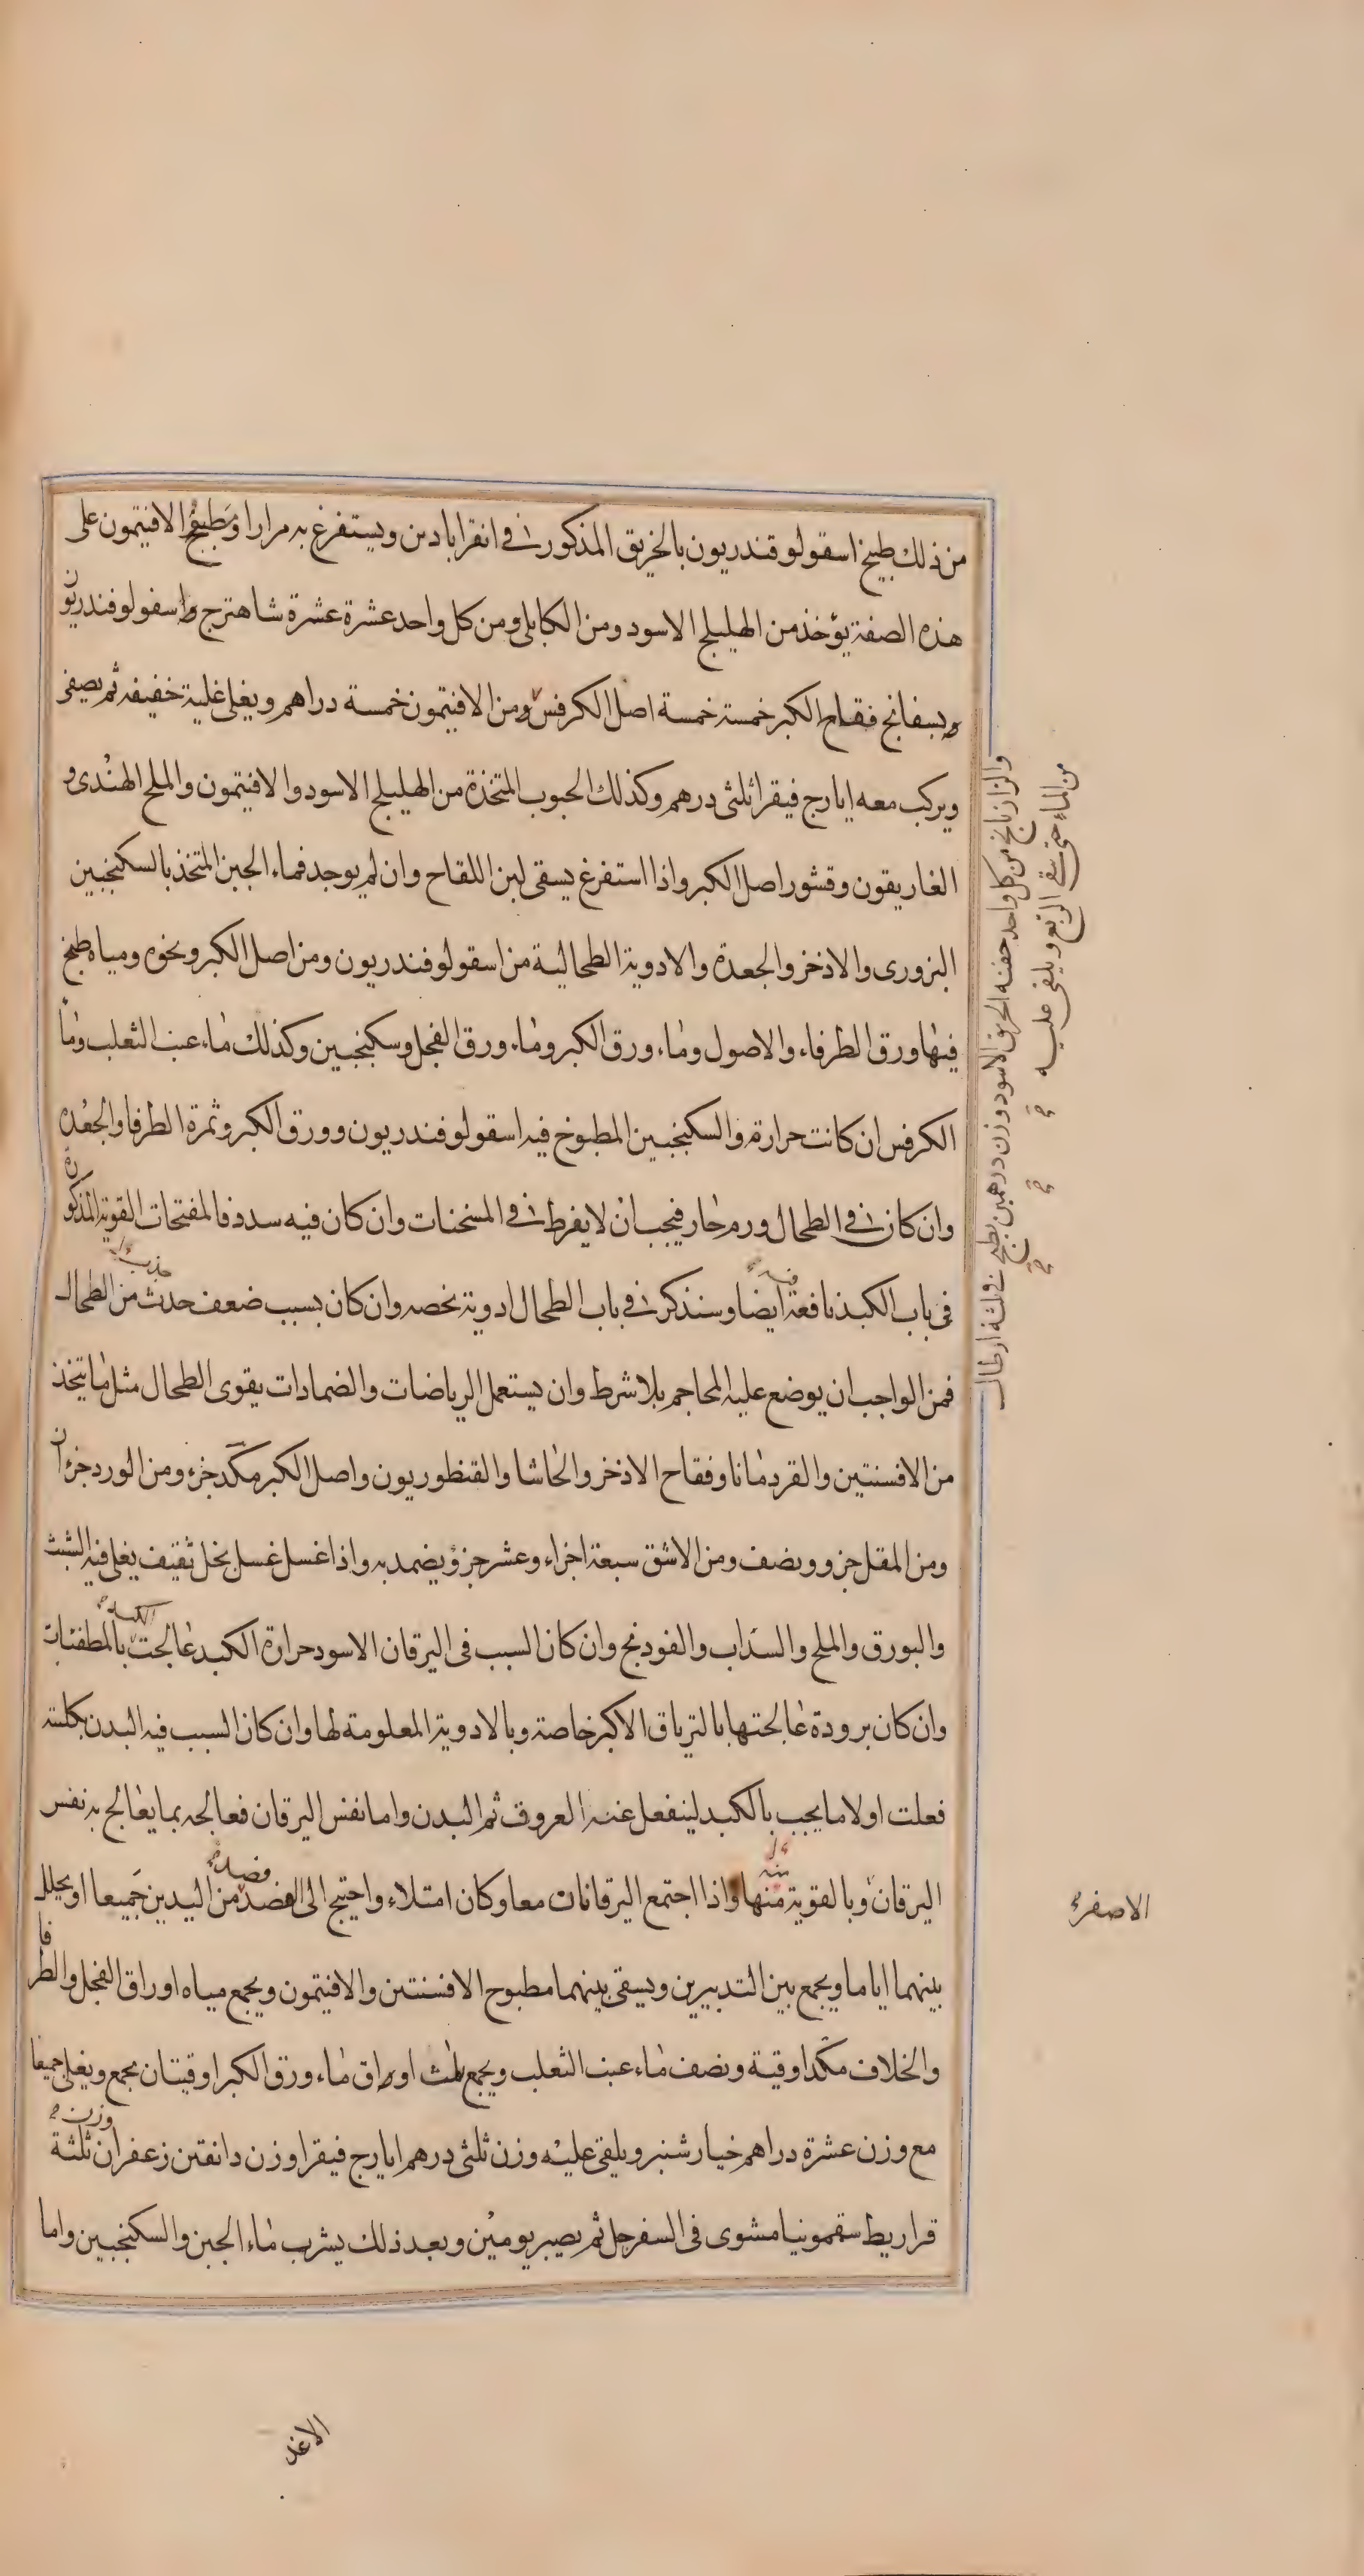 من ذلك طبيخ اسقولوقندريون بالخربق المذكور في انقراباذين ويستفرغ به مرارا ومطبوخ الافيتمون على
هذه الصفة يؤخذ من الهليلج الاسود ومن الكابلى ومن كل واحد عشرة عشرة شاهترج واسقولوفندريون
وبسفانج فقاح الكبر خمسة خمسة اصل الكرفس ومن الافيتمون خمسة دراهم ويغلى غلية خفيفه ثم يصفى
ويركب معه ايارج فيقرا ثلثى درهم وكذلك الحبوب المتخذة من الهليلج الاسود والافيتمون والملح الهندى و
الغاريقون وقشور اصل الكبر واذا استفرغ يسقى لبن اللقاح وان لم يوجد فماء الجبن المتخذ بالسكنجبين
البزورى والاذخر والجعدة والادوية الطحالية من اسقولوفندريون ومن اصل الكبر ونحوه ومياه طبخ
فيها ورق الطرفاء والاصول وماء ورق الكبر وماء ورق الفجل وسكنجبين وكذلك ماء عنب الثعلب وماء
الكرفس ان كانت حرارة والسكنجبين المطبوخ فيه اسقولوفندريون وورق الكبر وثمرة الطرفا والجعده
وان كان في الطحال ورم حار فيجب ان لا يفرط في المسخنات وان كان فيه سدد فالمفتحات القوية المذكورة
فى باب الكبد نافعة فيه ايضا وسنذكر في باب الطحال ادوية تخصه وان كان بسبب ضعف حدث من الطحال
فمن الواجب ان يوضع عليه المحاجم بلا شرط وان يستعمل الرياضات والضمادات يقوى الطحال مثل ما يتخذ
من الافسنتين والقردمانا وفقاح الاذخر والحاشا والقنطوريون واصل الكبر مكد جزء ومن الورد جزءان
ومن المقل جزو ونصف ومن الاشق سبعة اجزاء وعشر جزؤ يضمد به واذا غسل غسل بخل ثقيف يغلى فيه الشبث
والبورق والملح والسذاب والفودنج وان كان السبب فى اليرقان الاسود حرارة الكبد عالجت الكبد بالمطفئات
وان كان برودة عالجتها بالترياق الاكبر خاصة وبالادوية المعلومة لها وان كان السبب فيه البدن بكلته
فعلت اولا ما يجب بالكبد لينفعل عنه العروق ثم البدن واما نفس اليرقان فعالجه بما يعالج به نفس
اليرقان وبالقوية منها واذا اجتمع اليرقانان معا وكان امتلاء واحتيج الى الفصد فصد من اليدين جميعا او يخلل
بينهما اياما ويجمع بين التدبيرين ويسقى بينهما مطبوح الافسنتين والافيتمون ويجمع مياه اوراق الفجل والطرفا
والخلاف مكد اوقية ونصف ماء عنب الثعلب ويجمع ثلث اوراق ماء ورق الكبر اوقيتان يجمع ويغلى جميعا
مع وزن عشرة دراهم خيارشنبر ويلقى عليه وزن ثلثى درهم ايارج فيقرا وزن دانقتن زعفران وزن ثلثة
قراريط سقمونيا مشوى فى السفرجل ثم يصبر يومين وبعد ذلك يشرب ماء الجبن والسكنجبين واما
والرازيانج من كل واحد حفنه الخربق الاسود وزن درهمين يطبخ في ثلثة ارطال
من الماء حتى يبقى الربع ويلقى عليه
الاصفر
الاغذ